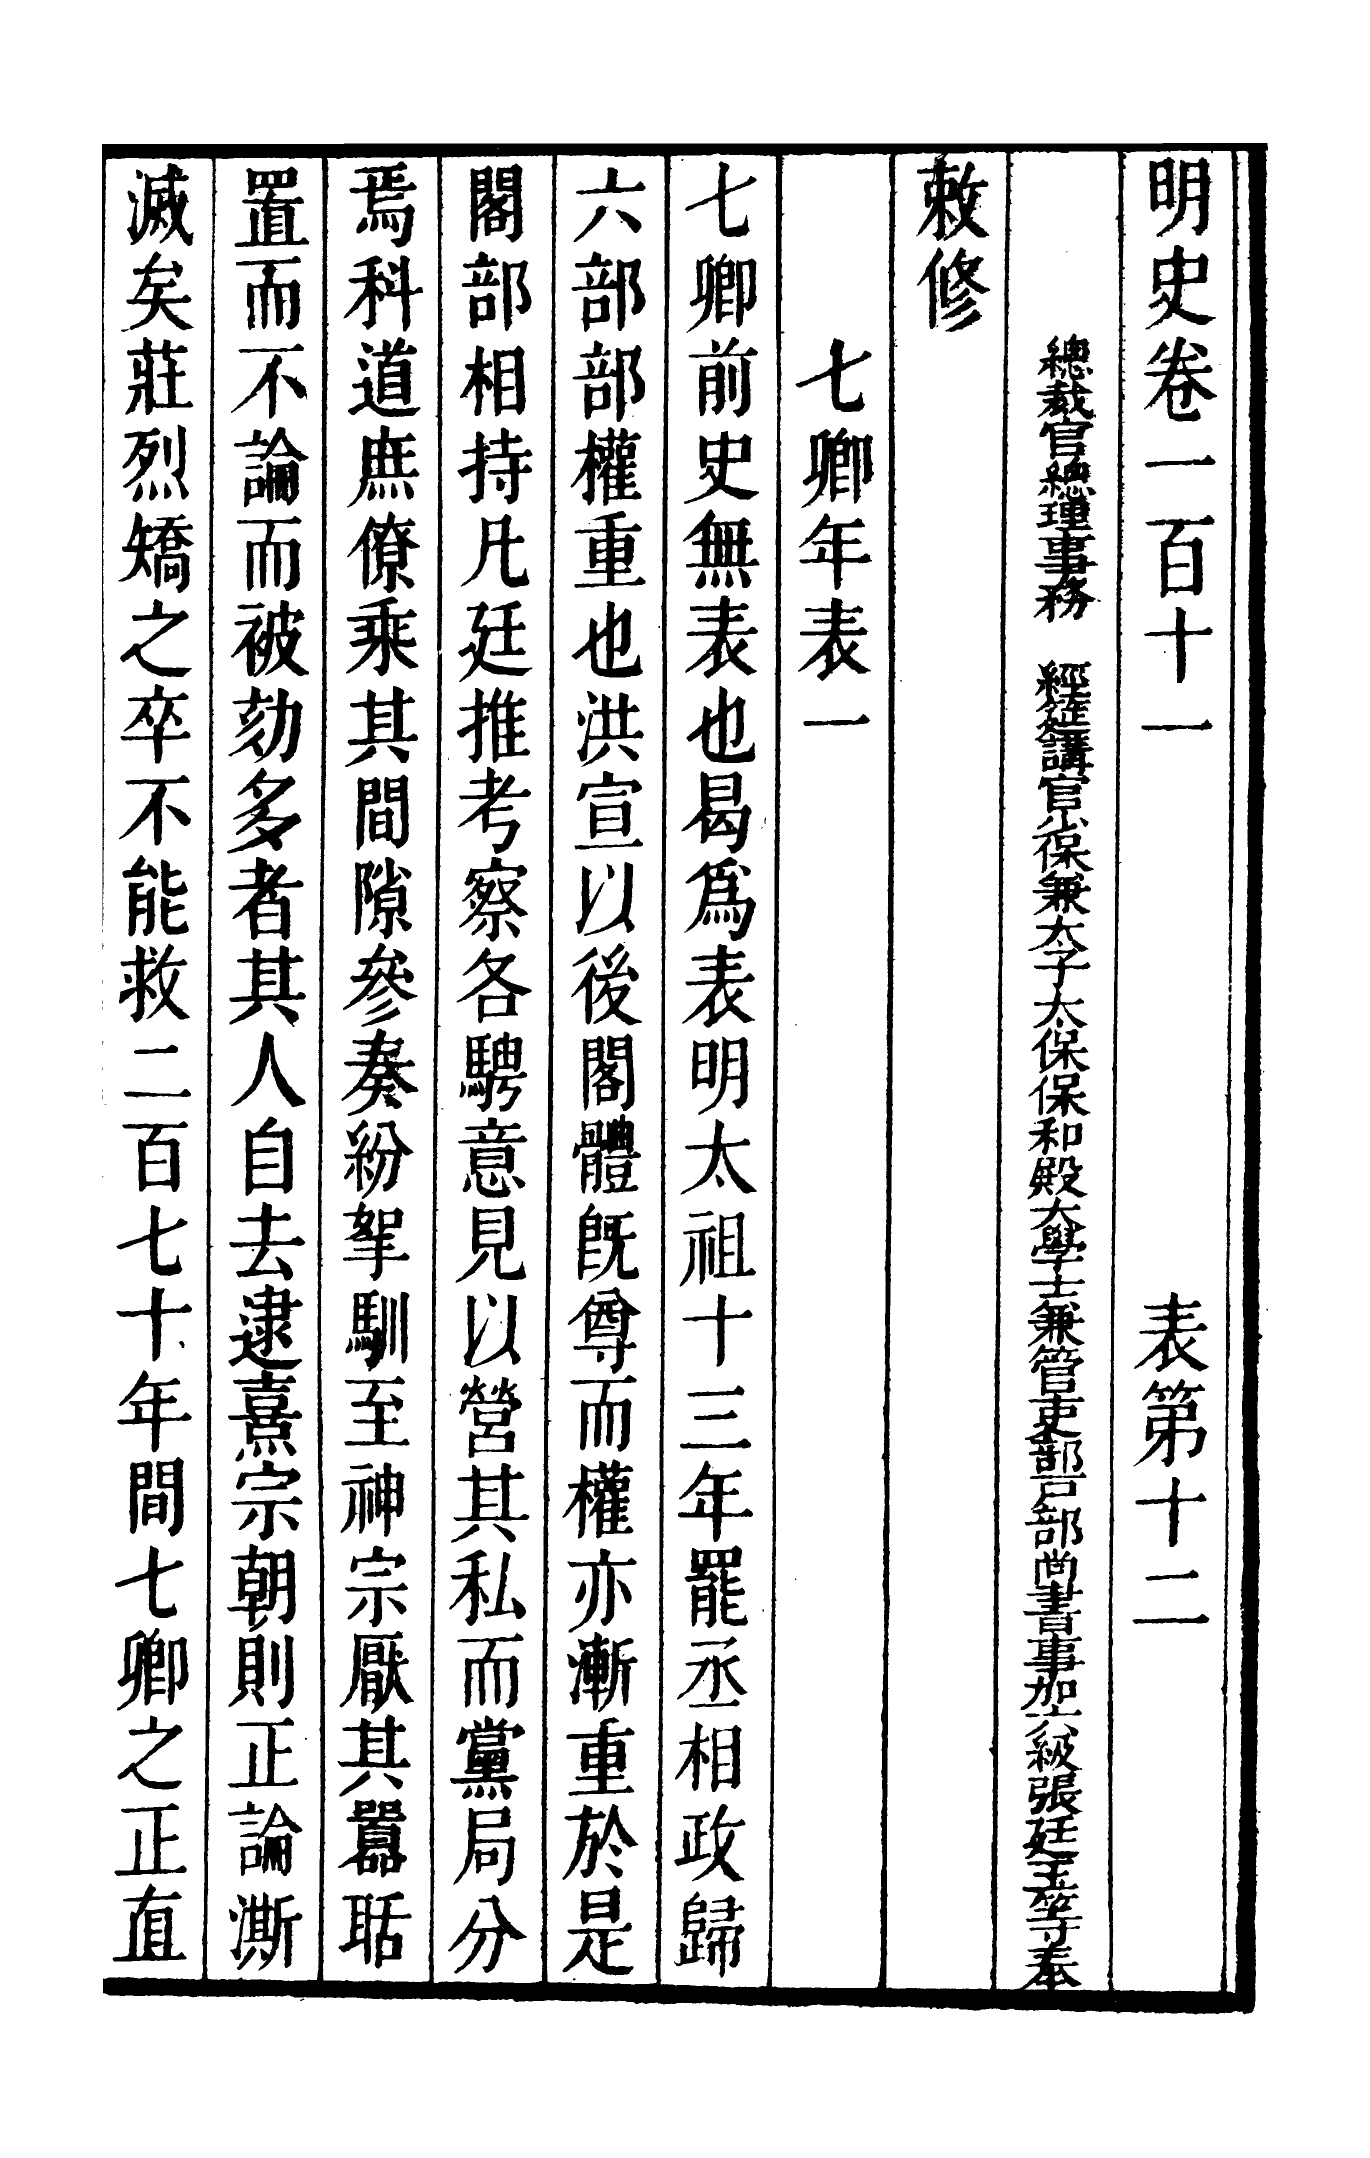 明史卷一百十一 表第十二
總裁官總理事務 經筵講官少保兼太子太保保和殿大學士兼管吏部戶部尚書事加六級張廷玉等奉
敕修
七卿年表一
七卿前史無表也曷爲表明太祖十三年罷丞相政歸
六部部權重也洪宣以後閣體旣尊而權亦漸重於是
閣部相持凡廷推考察各騁意見以營其私而黨局分
焉科道庶僚乘其間隙參奏紛拏馴至神宗厭其囂聒
置而不論而被劾多者其人自去逮熹宗朝則正論澌
滅矣莊烈矯之卒不能救二百七十年間七卿之正直